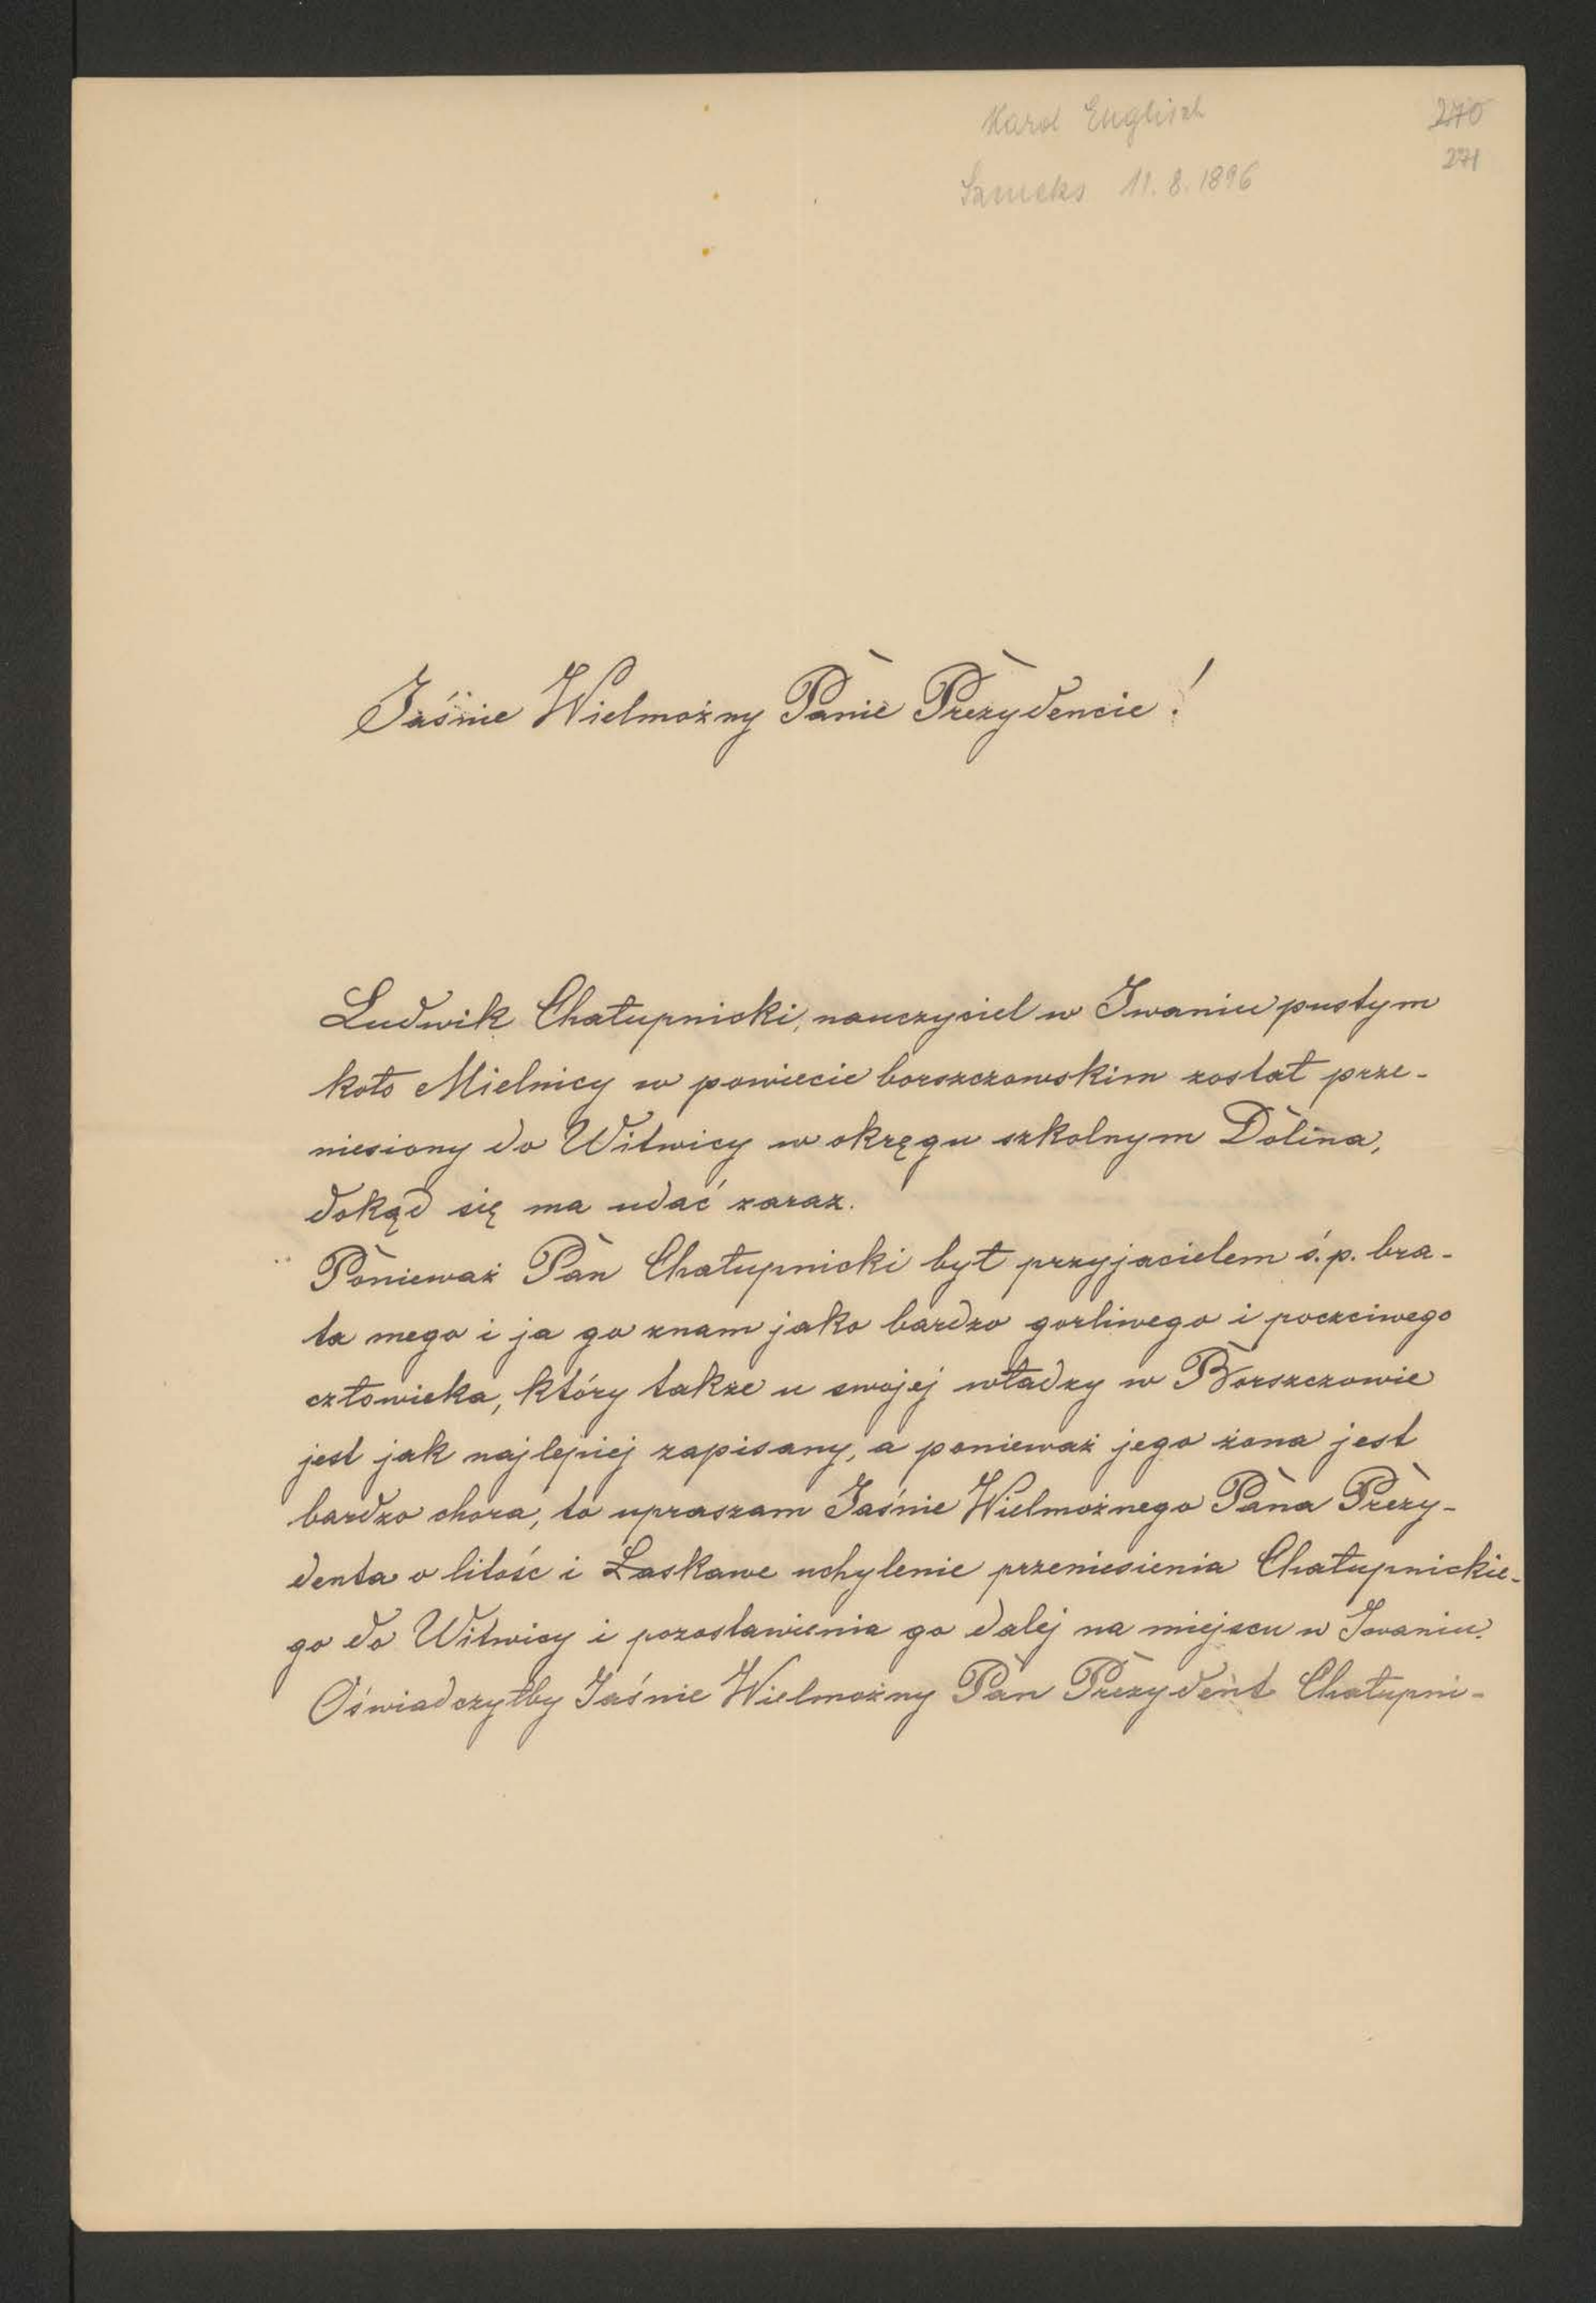 Karol Englisch
270
Szmeks 11.8.1896
271
Jaśnie Wielmożny Panie Prezydencie!
Ludwik Chałupnicki, nauczyciel w Iwaniu pustym
koło Mielnicy w powiecie borszczowskim został prze-
niesiony do Witwicy w okręgu szkolnym Dolina,
dokąd się ma udać zaraz.
Ponieważ Pan Chałupnicki był przyjacielem ś.p. bra-
ta mego i ja go znam jako bardzo gorliwego i poczciwego
człowieka, który także u swojej władzy w Borszczowie
jest jak najlepiej zapisany, a ponieważ jego żona jest
bardzo chora, to upraszam Jaśnie Wielmożnego Pana Prezy-
denta o litość i Łaskawe uchylenie przeniesienia Chałupnickie-
go do Witwicy i pozostawienia go dalej na miejscu w Iwaniu.
Oświadczyłby Jaśnie Wielmożny Pan Prezydent Chałupni-